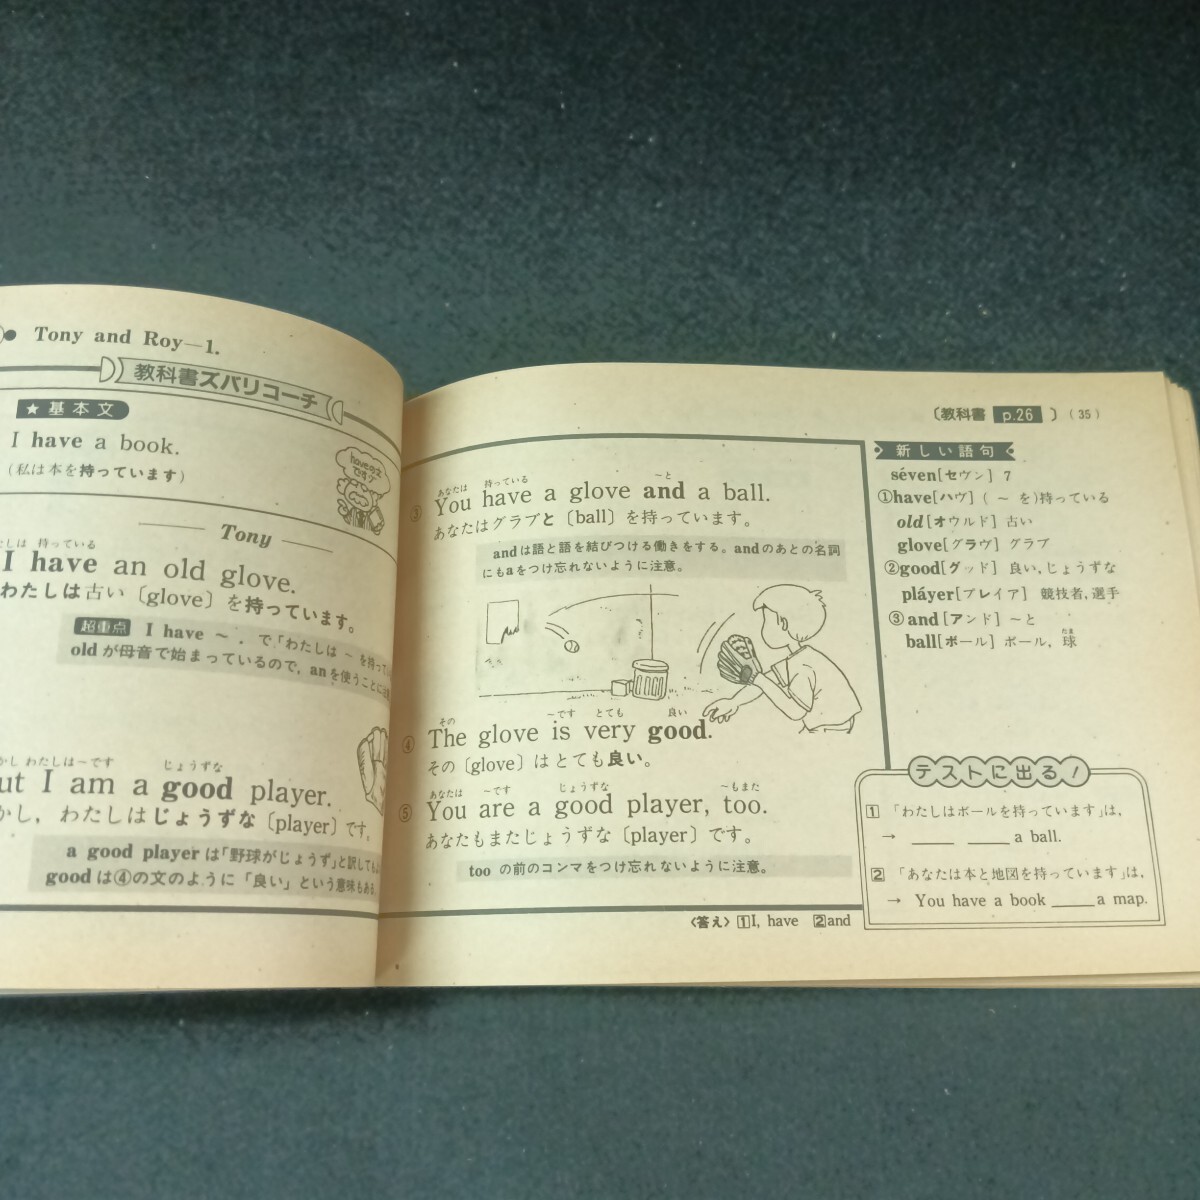 Tony and Roy—1.
教科書ズバリコーチ
★基本文
I have a book.
(私は本を持っています)
haveの文
ですゲ
Tony
持っている
I have an old glove.
わたしは古い〔glove〕を持っています。
超重点 I have ～ . で「わたしは ～ を持って
oldが母音で始まっているので, anを使うことに
わたしは～です じょうずな
ut I am a good player.
かし, わたしはじょうずな〔player〕です。
a good playerは「野球がじょうず」と訳しても
goodは④の文のように「良い」という意味もある
〔教科書 p.26 〕(35)
あなたは 持っている ～と
③ You have a glove and a ball.
あなたはグラブと〔ball〕を持っています。
andは語と語を結びつける働きをする。andのあとの名詞
にもaをつけ忘れないように注意。
その ～です とても 良い
④ The glove is very good.
その〔glove〕はとても良い。
あなたは ～です じょうずな ～もまた
⑤ You are a good player, too.
あなたもまたじょうずな〔player〕です。
too の前のコンマをつけ忘れないように注意。
〈答え〉1I, have 2and
新しい語句
séven[セヴン] 7
①have[ハヴ] (～を)持っている
old[オウルド] 古い
glove[グラヴ] グラブ
②good[グッド] 良い,じょうずな
pláyer[プレイア] 競技者,選手
③and[アンド] ～と
たま
ball[ボール] ボール, 球
テストに出る!
1 「わたしはボールを持っています」は,
→ ____ ____ a ball.
2 「あなたは本と地図を持っています」は,
→ You have a book ____ a map.